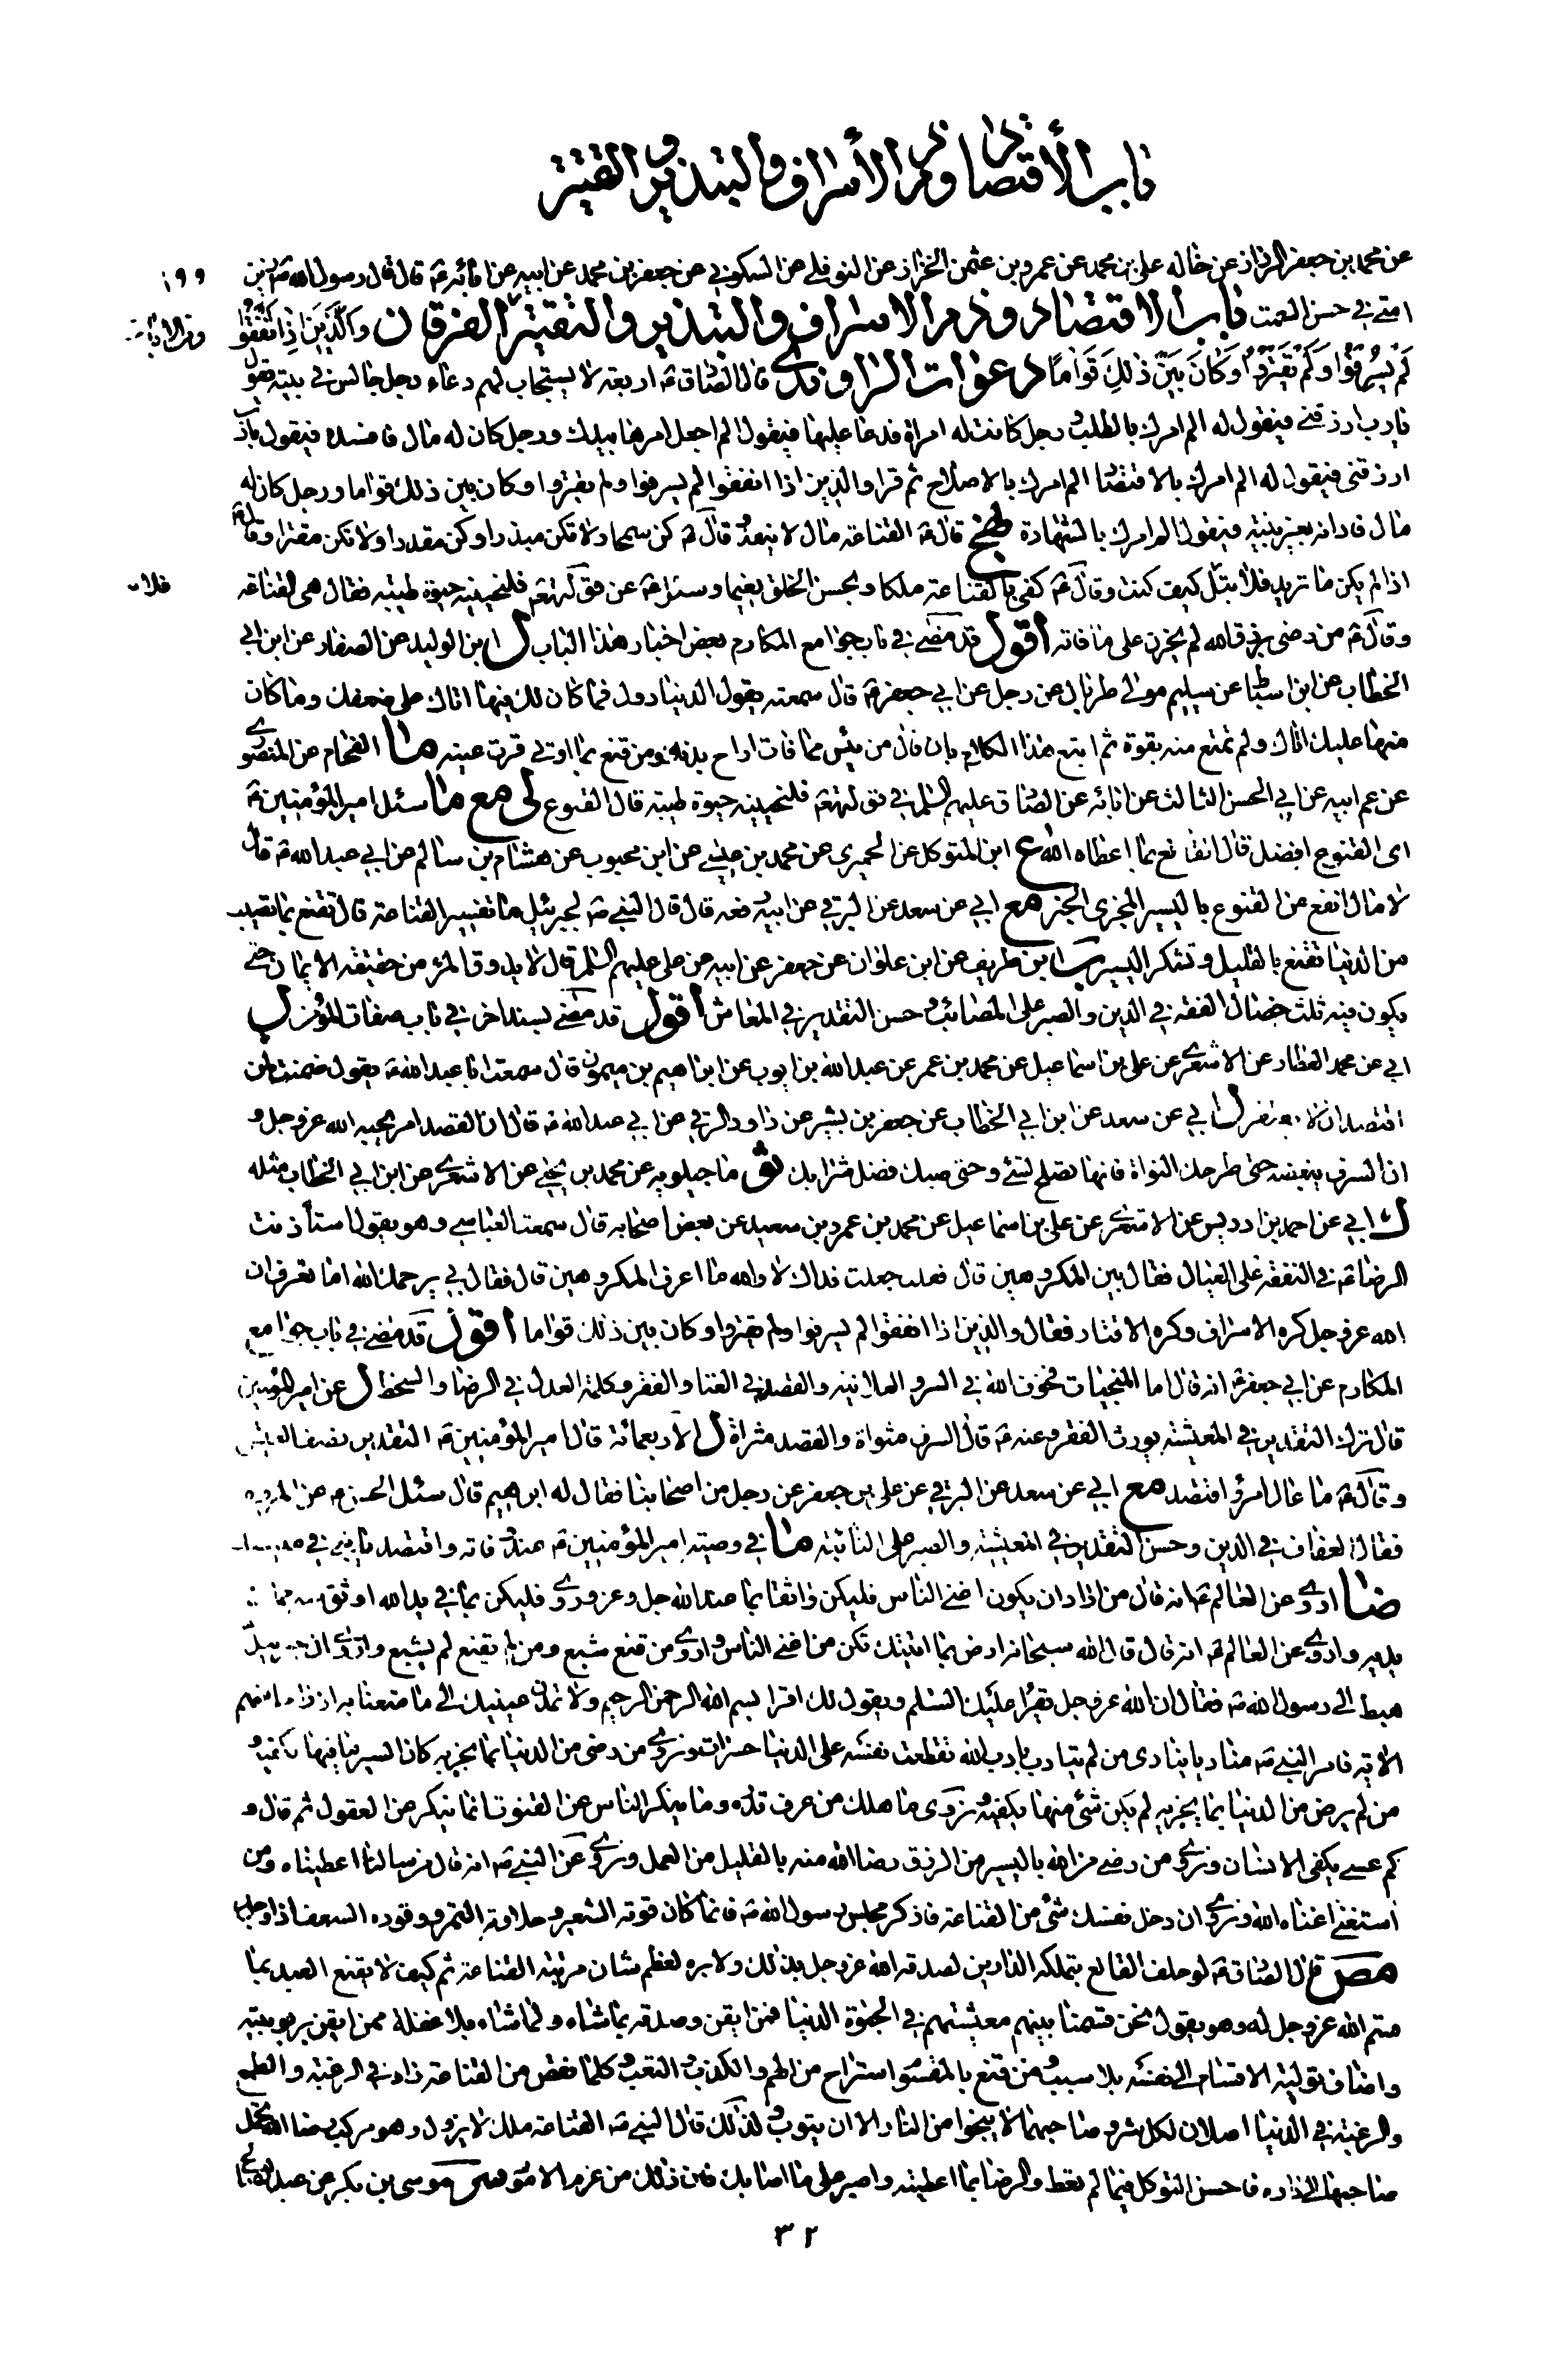 باب الأقتصاد وذم الأسراف والتبذير والتقتير
عن محمد بن جعفر الرزاز عن خاله علي بن محمد عن عمرو بن عثمن الخزاز عن النوفلي عن السكوني عن جعفر بن محمد عن ابيه عن ابائه ع قال قال رسول الله ص
١٩٩
امتي في حسن السمت باب الاقتصاد وذم الاسراف والتبذير والتقتير الفرقان وَالَّذِينَ إِذَا أَنْفَقُوا
لَمْ يُسْرِفُوا وَلَمْ يَقْتُرُوا وَكَانَ بَيْنَ ذَلِكَ قَوَامًا دعوات الراوندي قال الصادق ع اربعة لا يستجاب لهم دعاء رجل جالس في بيته يقول
يارب ارزقني فيقول له الم امرك بالطلب ورجل كانت له امراة فدعا عليها فيقول الم اجعل امرها بيدك ورجل كان له مال فافسده فيقول يارب
ارزقني فيقول له الم امرك بالاقتصاد الم امرك بالاصلاح ثم قرا والذين اذا انفقوا لم يسرفوا ولم يقتروا وكان بين ذلك قواما ورجل كان له
مال فادانه بغير بينة فيقول الم امرك بالشهادة نهج قال ع القناعة مال لا ينفد وقال ع كن سمحا ولا تكن مبذرا وكن مقدرا ولا تكن مقترا وقال ع
اذا لم يكن ما تريد فلا تبل كيف كنت وقال ع كفى بالقناعة ملكا وبحسن الخلق نعيما وسئل ع عن قوله تعم فلنحيينه حيوة طيبة فقال هي القناعة
وقال ع من رضي برزق الله لم يحزن على ما فاته اقول قد مضى في باب جوامع المكارم بعض اخبار هذا الباب ل ابن الوليد عن الصفار عن ابن ابي
الخطاب عن ابن اسباط عن سليم مولى طربال عن رجل عن ابي جعفر ع قال سمعته يقول الدنيا دول فما كان لك فيها اتاك على ضعفك وما كان
منها عليك اتاك ولم تمتنع منه بقوة ثم اتبع هذا الكلام بان قال من يئس مما فات اراح بدنه ومن قنع بما اوتي قرت عينه ما الفحام عن المنصوري
عن عم ابيه عن ابي الحسن الثالث عن ابائه عن الصادق عليهم السلم في قوله تعم فلنحيينه حيوة طيبة قال القنوع لى مع ما سئل امير المؤمنين ع
اى القنوع افضل قال القانع بما اعطاه الله ع ابن المتوكل عن الحميري عن محمد بن عيسى عن ابن محبوب عن هشام بن سالم عن ابي عبد الله ع قال
لا مال انفع من القنوع باليسير المجزى الخبر مع ابي عن سعد عن البرقي عن ابيه رفعه قال قال النبي ص لجبرئيل ما تفسير القناعة قال تقنع بما تصيب
من الدنيا تقنع بالقليل وتشكر اليسير ب ابن طريف عن ابن علوان عن جعفر عن ابيه عن علي عليهم السلم قال لا يذوق المرء من حقيقة الايمان حتى
يكون فيه ثلث خصال الفقه في الدين والصبر على المصائب و حسن التقدير في المعاش اقول قد مضى بسند اخر في باب صفات المؤمن ل
ابي عن محمد العطار عن الاشعري عن علي بن اسماعيل عن محمد بن عمر عن عبد الله بن ايوب عن ابراهيم بن ميمون قال سمعت ابا عبد الله ع يقول ضمنت لمن
اقتصد ان لا يفتقر ل ابي عن سعد عن ابن ابي الخطاب عن جعفر بن بشير عن داود الرقي عن ابي عبد الله ع قال ان القصد امر يحبه الله عز وجل و
ان السرف يبغضه حتى طرحك النواة فانها تصلح لشئ وحتى صبك فضل شرابك ثو ماجيلويه عن محمد بن يحيى عن الاشعري عن ابن ابي الخطاب مثله
ل ابي عن احمد بن ادريس عن الاشعري عن علي بن اسماعيل عن محمد بن عمرو بن سعيد عن بعض اصحابه قال سمعت العياشي وهو يقول استأذنت
الرضا ع في النفقة على العيال فقال بين المكروهين قال فقلت جعلت فداك لا والله ما اعرف المكروهين قال فقال لي يرحمك الله اما تعرف ان
الله عز وجل كره الاسراف وكره الاقتار فقال والذين اذا انفقوا لم يسرفوا ولم يقتروا وكان بين ذلك قواما اقول قد مضى في باب جوامع
المكارم عن ابي جعفر ع انه قال اما المنجيات فخوف الله في السر والعلانية والقصد في الغنا والفقر وكلمة العدل في الرضا والسخط ل عن امير المؤمنين
قال ترك التقدير في المعيشة يورث الفقر وعنه ع قال السرف مثواة والقصد مثراة ل الاربعمائة قال امير المؤمنين ع التقدير نصف العيش
وقال ع ما عال امرؤ اقتصد مع ابي عن سعد عن البرقي عن علي بن جعفر عن رجل من اصحابنا فقال له ابرهيم قال سئل الحسن ع عن المروة
فقال العفاف في الدين وحسن التقدير في المعيشة والصبر على النائبة ما في وصية امير المؤمنين ع عند وفاته واقتصد يابني في
ضا اروي عن العالم ع انه قال من اراد ان يكون اغنى الناس فليكن واثقا بما عند الله جل وعز وروي فليكن بما في يد الله اوثق منه مما
يديه واروي عن العالم ع انه قال قال الله سبحانه ارض بما اتيتك تكن من اغنى الناس واروي من قنع شبع ومن لم يقنع لم يشبع واروي ان جبرئيل
هبط الى رسول الله ص فقال ان الله عز وجل يقرأ عليك السلم ويقول لك اقرا بسم الله الرحمن الرحيم ولا تمدن عينيك الى ما متعنا به ازواجا منهم
الاية فامر النبي ص مناديا ينادى من لم يتادب بادب الله تقطعت نفسه على الدنيا حسرات ونروي من رضى من الدنيا بما يجزيه كان ايسر ما فيها يكفيه و
من لم يرض من الدنيا بما يجزيه لم يكن شئ منها يكفيه ونروى ما هلك من عرف قدره وما ينكر الناس عن القوت انما ينكر عن العقول ثم قال و
كم عسى يكفى الانسان ونروي من رضى من الله باليسير من الرزق رضا الله منه بالقليل من العمل ونروي عن النبي ص انه قال من سالنا اعطيناه ومن
استغنى اغناه الله ونروي ان دخل نفسك شئ من القناعة فاذكر مجلس رسول الله ص فانما كان قوته الشعير وحلاوته التمر ووقوده السعف اذا وجد
مص قال الصادق ع لو حلف القانع بتملكه الدارين لصدقه الله عز وجل بذلك ولابره لعظم شان مرتبة القناعة ثم كيف لا يقنع العبد بما
قسم الله عز وجل له وهو يقول نحن قسمنا بينهم معيشتهم في الحيوة الدنيا فمن ايقن وصدقه بما شاء ولما شاء بلا غفلة ممن ايقن بربوبيته
واضاف تولية الاقسام الى نفسه بلا سبب ومن قنع بالمقسوم استراح من الهم والكذب والتعب وكلما نقص من القناعة زاد في الرغبة والطمع
والرغبة في الدنيا اصلان لكل شر وصاحبهما لا ينجوا من النار الا ان يتوب ولذلك قال النبي ص القناعة ملك لا يزول وهو مركب رضا الله تحمل
صاحبها الى داره فاحسن التوكل فيما لم تعط والرضا بما اعطيت واصبر على ما اصابك فان ذلك من عزم الامور موسى بن بكر عن عبد
٣٢